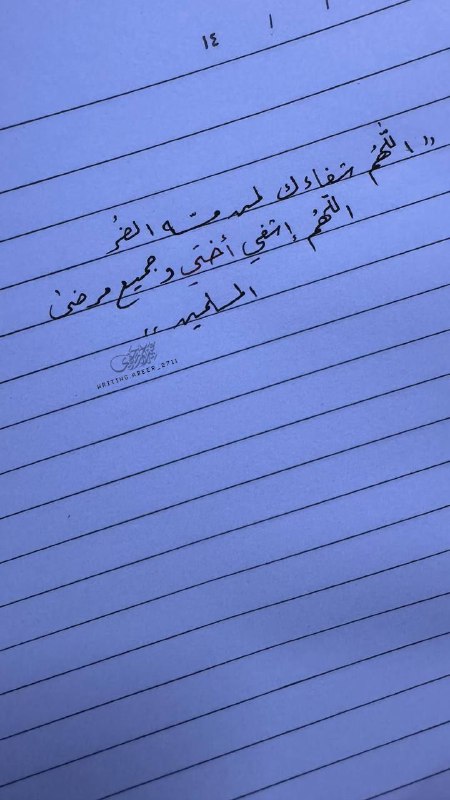 ١٤ / /
" اللّٰهُم شفاءك لمن مسّه الضُر
اللّٰهُم إشفي أختي وجميع مرضىٰ
المسلمين "
WRITING.ABEER_8711